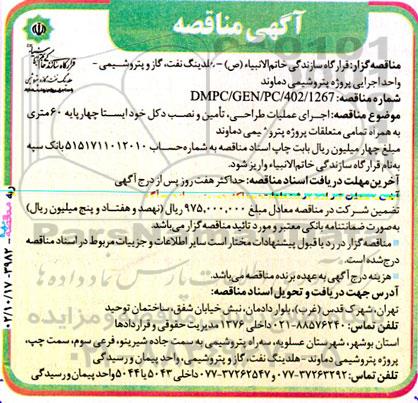 آگهی مناقصه
مناقصه گزار: قرارگاه سازندگی خاتم‌الانبیاء (ص) - هلدینگ نفت، گاز و پتروشیمی -
واحد اجرایی پروژه پتروشیمی دماوند
شماره مناقصه: DMPC/GEN/PC/402/1267
موضوع مناقصه: اجرای عملیات طراحی، تأمین و نصب دکل خود ایستا چهارپایه ۶۰ متری
به همراه تمامی متعلقات پروژه پتروشیمی دماوند
مبلغ چهار میلیون ریال بابت چاپ اسناد مناقصه به شماره حساب ۵۱۵۱۷۱۱۰۱۲۰۱۰ بانک سپه
به نام قرارگاه سازندگی خاتم‌الانبیاء واریز شود.
آخرین مهلت دریافت اسناد مناقصه: حداکثر هفت روز پس از درج آگهی
تضمین شرکت در مناقصه معادل مبلغ ۹۷۵,۰۰۰,۰۰۰ ریال (نهصد و هفتاد و پنج میلیون ریال)
به صورت ضمانتنامه بانکی معتبر و مورد تائید مناقصه گزار می‌باشد.
مناقصه گزار در رد یا قبول پیشنهادات مختار است سایر اطلاعات و جزییات مربوط در اسناد مناقصه
درج شده است.
هزینه درج آگهی به عهده برنده مناقصه می‌باشد.
آدرس جهت دریافت و تحویل اسناد مناقصه:
تهران، شهرک قدس (غرب)، بلوار دادمان، نبش خیابان شفق، ساختمان توحید
تلفن تماس: ۸۸۵۷۶۲۴۰-۰۲۱ داخلی ۱۳۷۶ مدیریت حقوقی و قراردادها
استان بوشهر، شهرستان عسلویه، سه راه پتروشیمی به سمت جاده شیرینو، فرعی سوم، سمت چپ،
پروژه پتروشیمی دماوند - هلدینگ نفت، گاز و پتروشیمی، واحد پیمان و رسیدگی
تلفن تماس: ۳۷۲۶۳۲۹۲-۰۷۷ و ۳۷۲۶۲۵۴۷-۰۷۷ داخلی ۵۰۴۳ یا ۵۰۴۴ واحد پیمان و رسیدگی
۰۲/۱۰/۱۷ - ۳۹۸۲